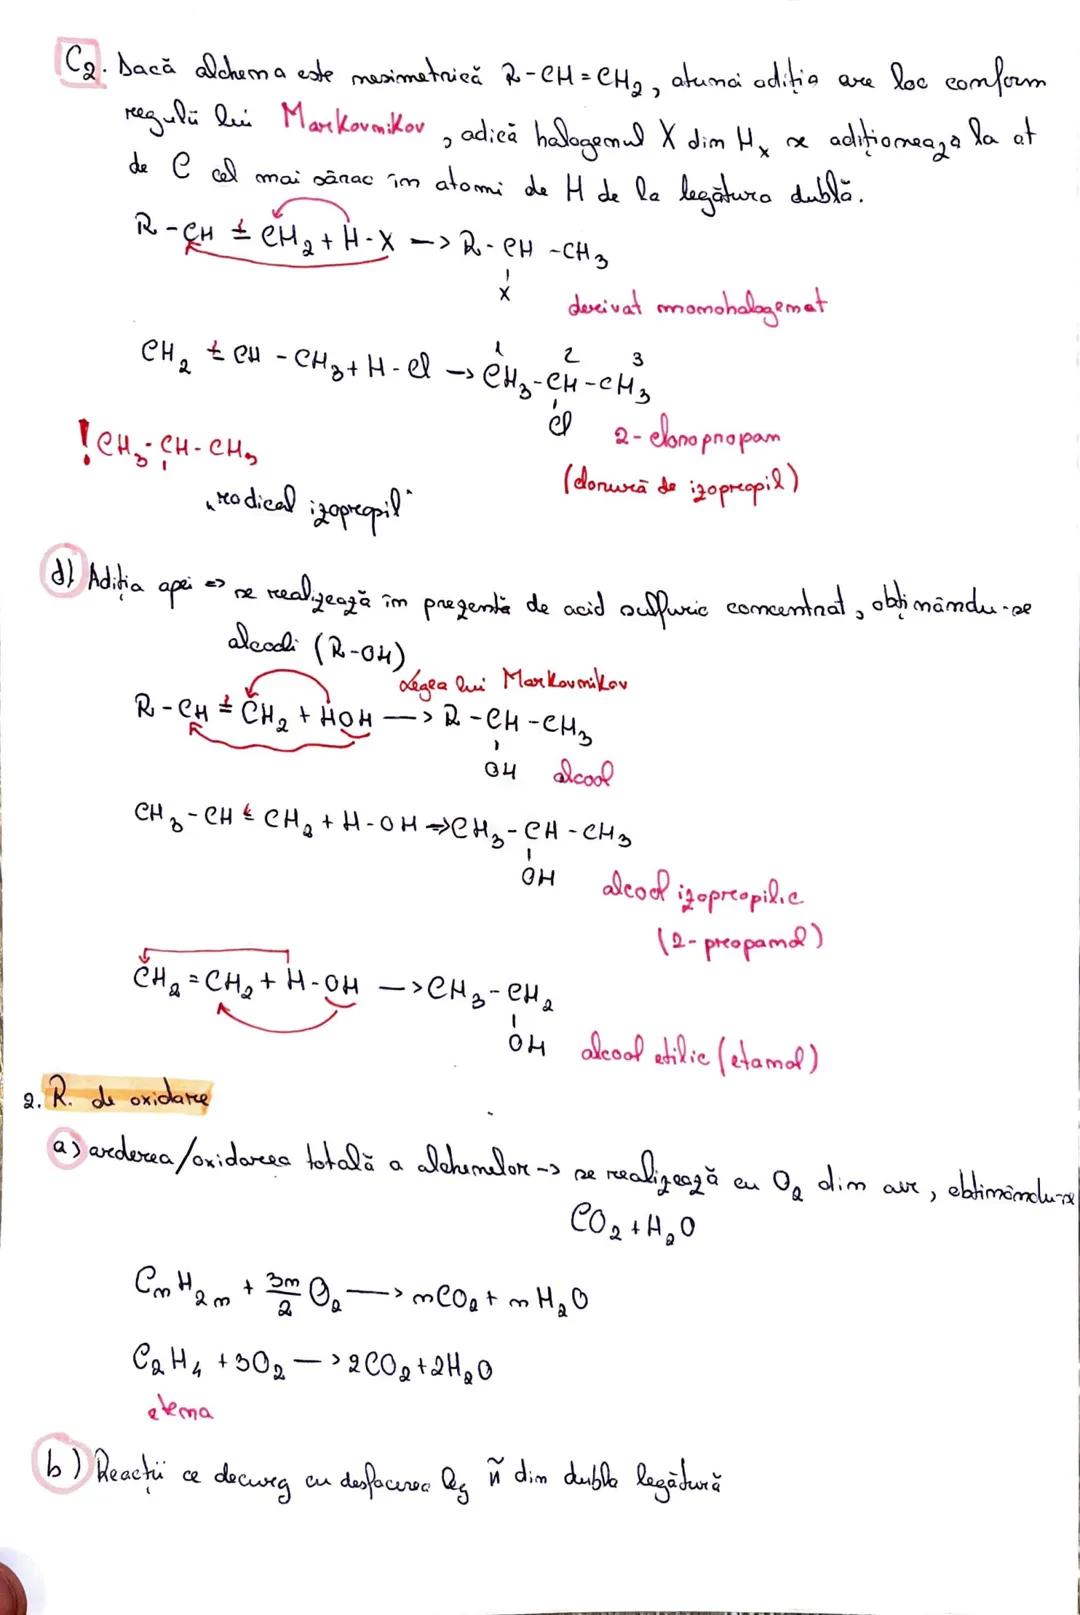 C2. Dacă alchena este nesimetrică R-CH=CH₂, atunci adiția are loc conform
regulii lui Markovnikov, adică halogenul X din Hx se adiționează la at
de C cel mai sărac în atomi de H de la legătura dublă.
R-CH=CH₂+H-X -> R-CH-CH₃
X
derivat monohalogenat
1 2 3
CH₂=CH-CH₃+H-Cl -> CH₃-CH-CH₃
Cl
2-cloropropan
(clorură de izopropil)
! CH₃-CH-CH₃
"radical izopropil"
d) Adiția apei => se realizează în prezență de acid sulfuric concentrat, obținându-se
alcooli (R-OH)
Legea lui Markovnikov
R-CH=CH₂+HOH -> R-CH-CH₃
OH alcool
CH₃-CH=CH₂+H-OH => CH₃-CH-CH₃
OH
alcool izopropilic
(2-propanol)
CH₂=CH₂+H-OH -> CH₃-CH₂
OH alcool etilic (etanol)
2. R. de oxidare
a) arderea/oxidarea totală a alchenelor -> se realizează cu O₂ din aer, obținându-se
CO₂+H₂O
CnH2n + 3n/2 O₂ -> nCO₂+nH₂O
C₂H₄+3O₂ -> 2CO₂+2H₂O
etena
b) Reacții ce decurg cu desfacerea leg π din dubla legătură